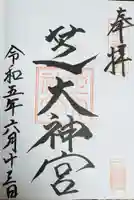 奉拝
芝大神宮
令和五年六月十三日